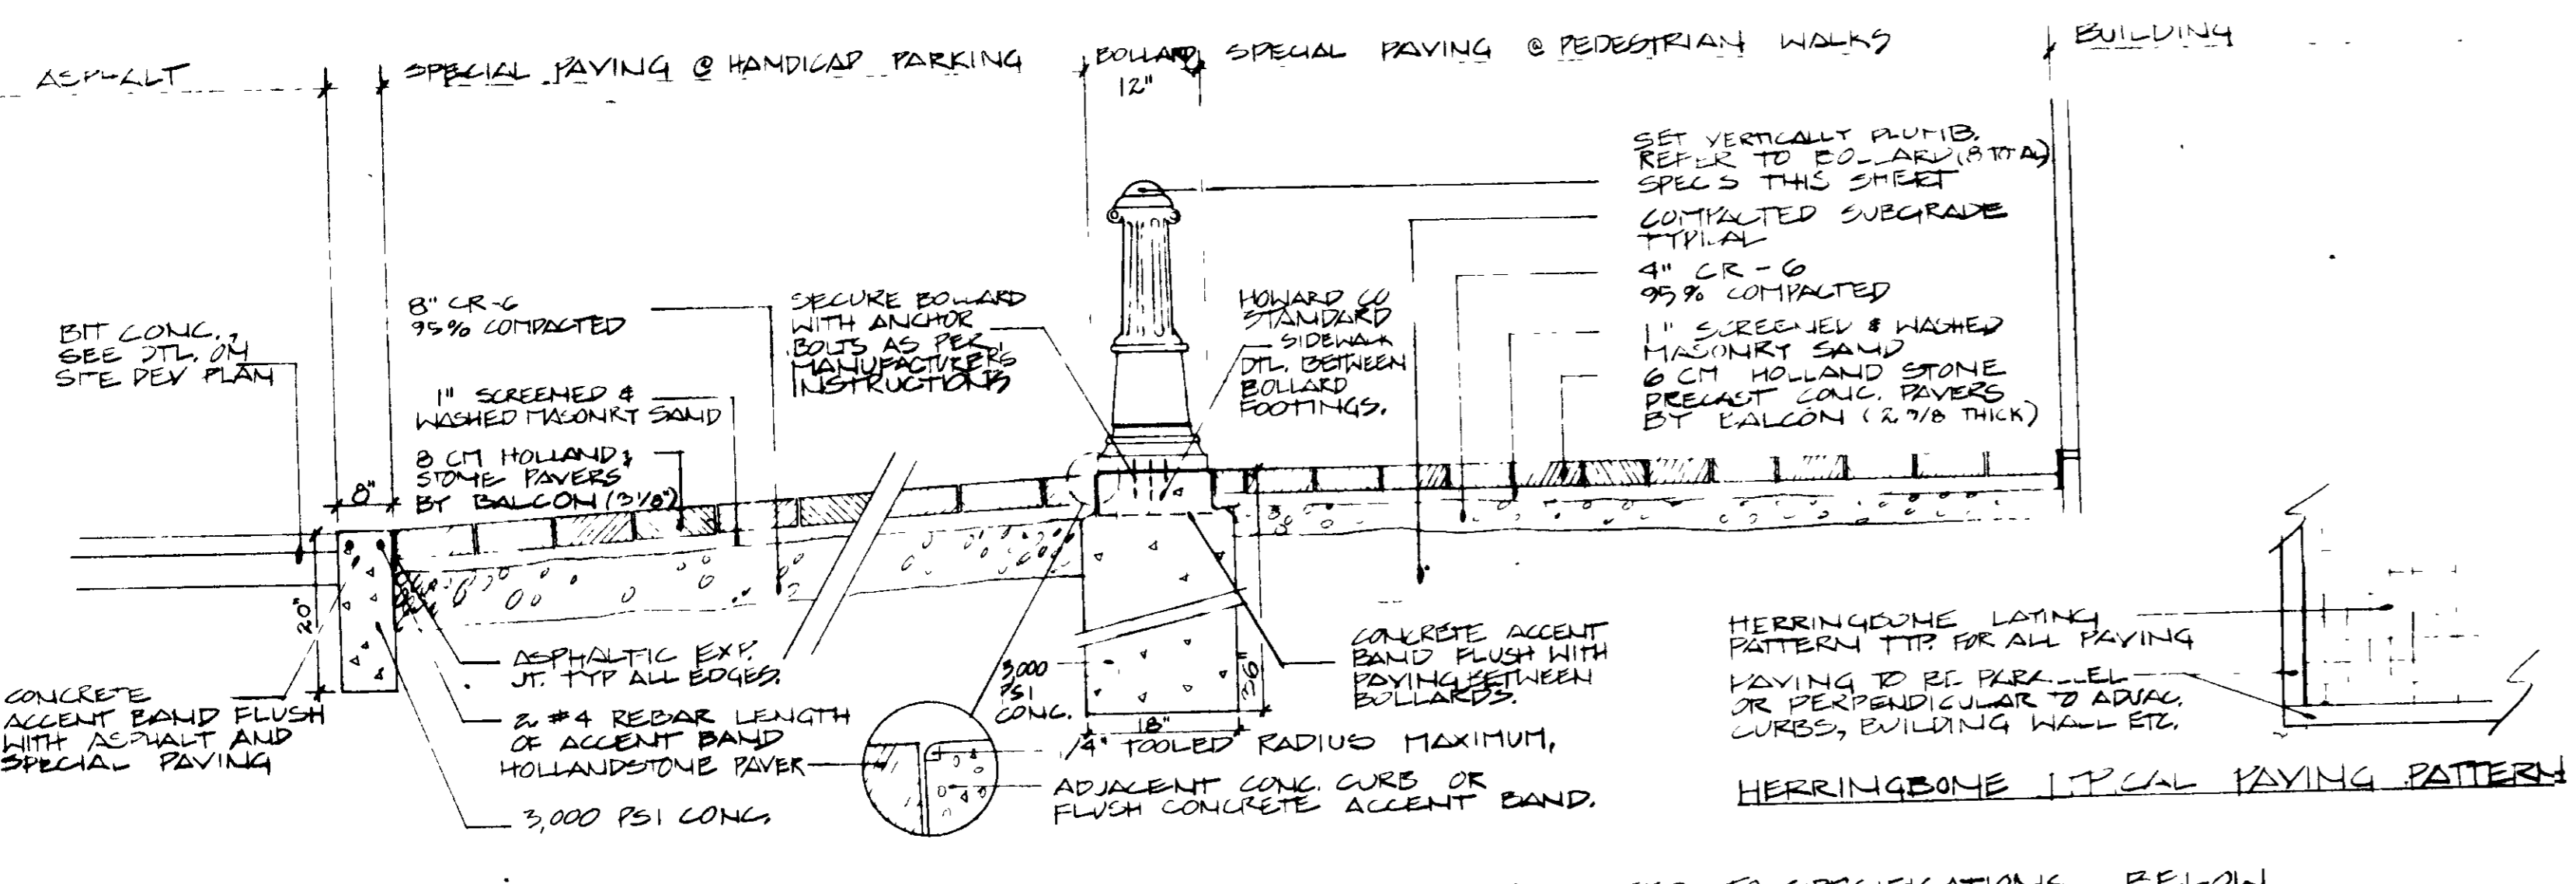 ASPHALT
SPECIAL PAVING @ HANDICAP PARKING
BOLLARD
12"
SPECIAL PAVING @ PEDESTRIAN WALKS
BUILDING
SET VERTICALLY PLUMB.
REFER TO BOLLARD (8 TOTAL)
SPECS THIS SHEET
COMPACTED SUBGRADE
TYPICAL
4" CR-6
95% COMPACTED
1" SCREENED & WASHED
MASONRY SAND
6 CM HOLLAND STONE
PRECAST CONC. PAVERS
BY BALCON (2 3/8 THICK)
8" CR-6
95% COMPACTED
SECURE BOLLARD
WITH ANCHOR
BOLTS AS PER
MANUFACTURERS
INSTRUCTIONS
HOWARD CO
STANDARD
SIDEWALK
DTL. BETWEEN
BOLLARD
FOOTINGS.
BIT CONC.,
SEE DTL. ON
SITE DEV PLAN
1" SCREENED &
WASHED MASONRY SAND
8 CM HOLLAND
STONE PAVERS
BY BALCON (3 1/8")
8"
20"
ASPHALTIC EXP.
JT. TYP ALL EDGES.
2 #4 REBAR LENGTH
OF ACCENT BAND
HOLLANDSTONE PAVER
3,000 PSI CONC.
CONCRETE
ACCENT BAND FLUSH
WITH ASPHALT AND
SPECIAL PAVING
3,000
PSI
CONC.
18"
36"
CONCRETE ACCENT
BAND FLUSH WITH
PAVING BETWEEN
BOLLARDS.
1/4" TOOLED RADIUS MAXIMUM,
ADJACENT CONC. CURB OR
FLUSH CONCRETE ACCENT BAND.
HERRINGBONE LAYING
PATTERN TYP. FOR ALL PAVING
PAVING TO BE PARALLEL
OR PERPENDICULAR TO ADJAC.
CURBS, BUILDING WALL ETC.
HERRINGBONE TYPICAL PAVING PATTERN
SPECIFICATIONS BELOW